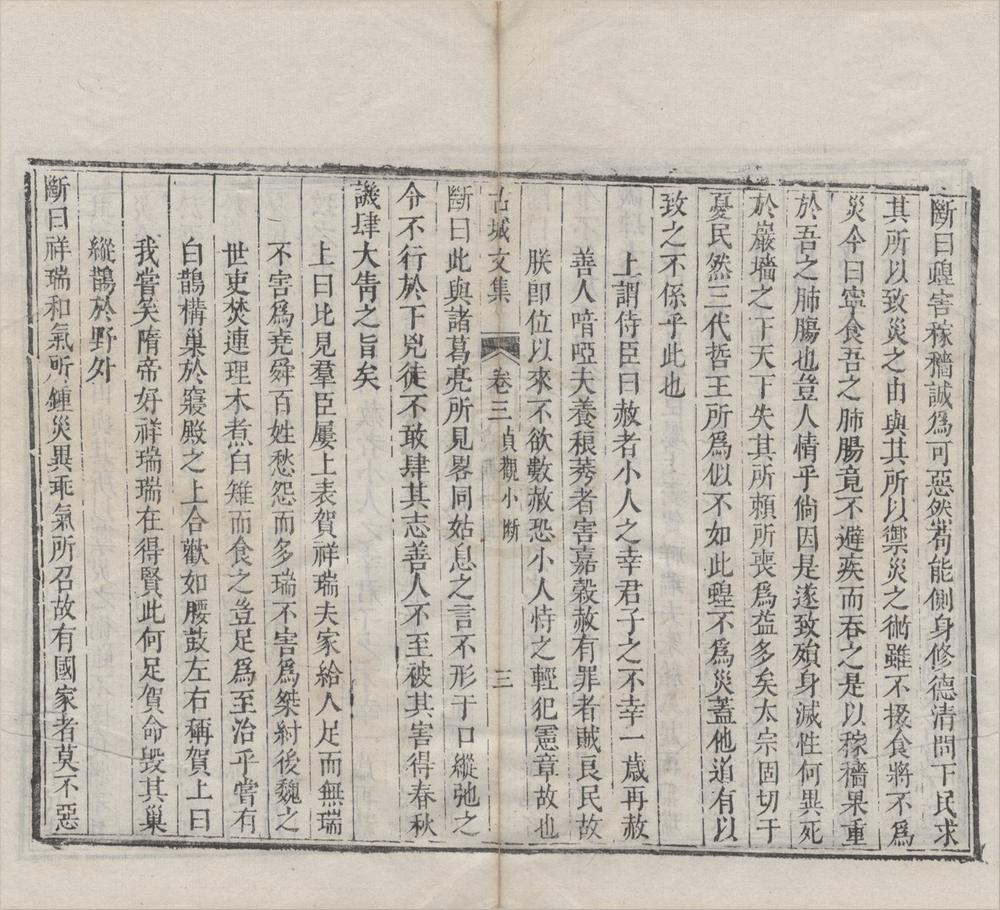 斷曰蝗害稼穡誠爲可惡然苟能側身修德清問下民求
其所以致災之由與其所以禦災之術雖不掇食將不爲
災今曰寧食吾之肺腸竟不避疾而吞之是以稼穡果重
於吾之肺腸也豈人情乎倘因是遂致殞身減性何異死
於巖墻之下天下失其所賴所喪爲益多矣太宗固切于
憂民然三代哲王所爲似不如此蝗不爲災蓋他道有以
致之不係乎此也
上謂侍臣曰赦者小人之幸君子之不幸一歲再赦
善人喑啞夫養稂莠者害嘉穀赦有罪者賊良民故
朕卽位以來不欲數赦恐小人恃之輕犯憲章故也
古城文集 卷三 貞觀小斷 三
斷曰此與諸葛亮所見畧同姑息之言不形于口縱弛之
令不行於下兇徒不敢肆其志善人不至被其害得春秋
譏肆大眚之旨矣
上曰比見羣臣屢上表賀祥瑞夫家給人足而無瑞
不害爲堯舜百姓愁怨而多瑞不害爲桀紂後魏之
世吏焚連理木煮白雉而食之豈足爲至治乎嘗有
白鵲構巢於寢殿之上合歡如腰鼓左右稱賀上曰
我嘗笑隋帝好祥瑞瑞在得賢此何足賀命毀其巢
縱鵲於野外
斷曰祥瑞和氣所鍾災異乖氣所召故有國家者莫不惡